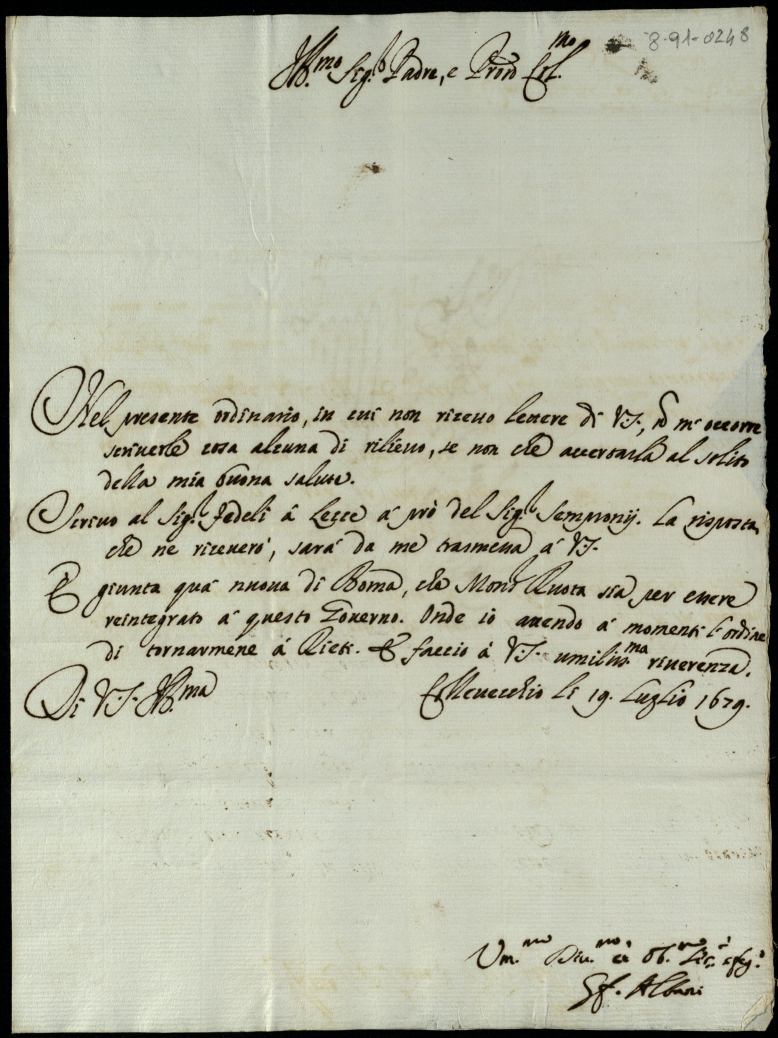 8-91-0248
Ill.mo Sig.r Padre, e Pron Col.mo
Nel presente ordinario, in cui non riceuo lettere di V.S., nō m'occorre
scriuerle cosa alcuna di rilieuo, se non che accertarla al solito
della mia buona salute.
Scriuo al Sig.r Fedeli á Lecce á prò del Sig.r Sempronij. La risposta,
che ne riceuerò, sará da me trasmessa á V.S.
È giunta quá nuoua di Roma, che Mons.r Ruota sia per essere
reintegrato á questo Gouerno. Onde io attendo á momenti l'ordine
di tornarmene á Rieti. E faccio á V.S. umiliss.ma riuerenza.
Di V.S. Ill.ma Colleuecchio li 19. Luglio 1679.
Um.mo Diu.mo et Ob.mo
Gf. Albani